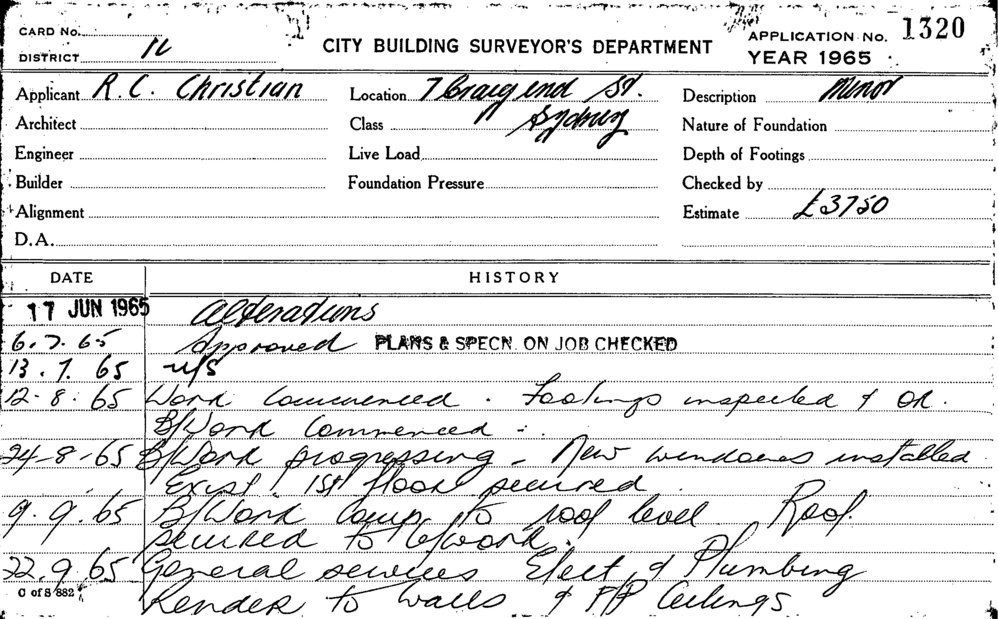 CARD No.
DISTRICT 11
CITY BUILDING SURVEYOR'S DEPARTMENT
APPLICATION No. 1320
YEAR 1965
Applicant R.C. Christian
Location 7 Craigend St.
Description Minor
Architect
Class Sydney
Nature of Foundation
Engineer
Live Load
Depth of Footings
Builder
Foundation Pressure
Checked by
Alignment
Estimate £3750
D.A.
DATE
HISTORY
17 JUN 1965 Alterations
6.7.65 Approved PLANS & SPECN. ON JOB CHECKED
13.7.65 N/S
12.8.65 Work Commenced. Footings inspected & OK.
B/Work Commenced
24-8-65 B/Work progressing - New windows installed
Exist. 1st floor secured
9.9.65 B/Work Comp. to roof level Roof
secured to b/work.
22.9.65 General services Elect & Plumbing
Render to walls & F/P Ceilings
C of S 882